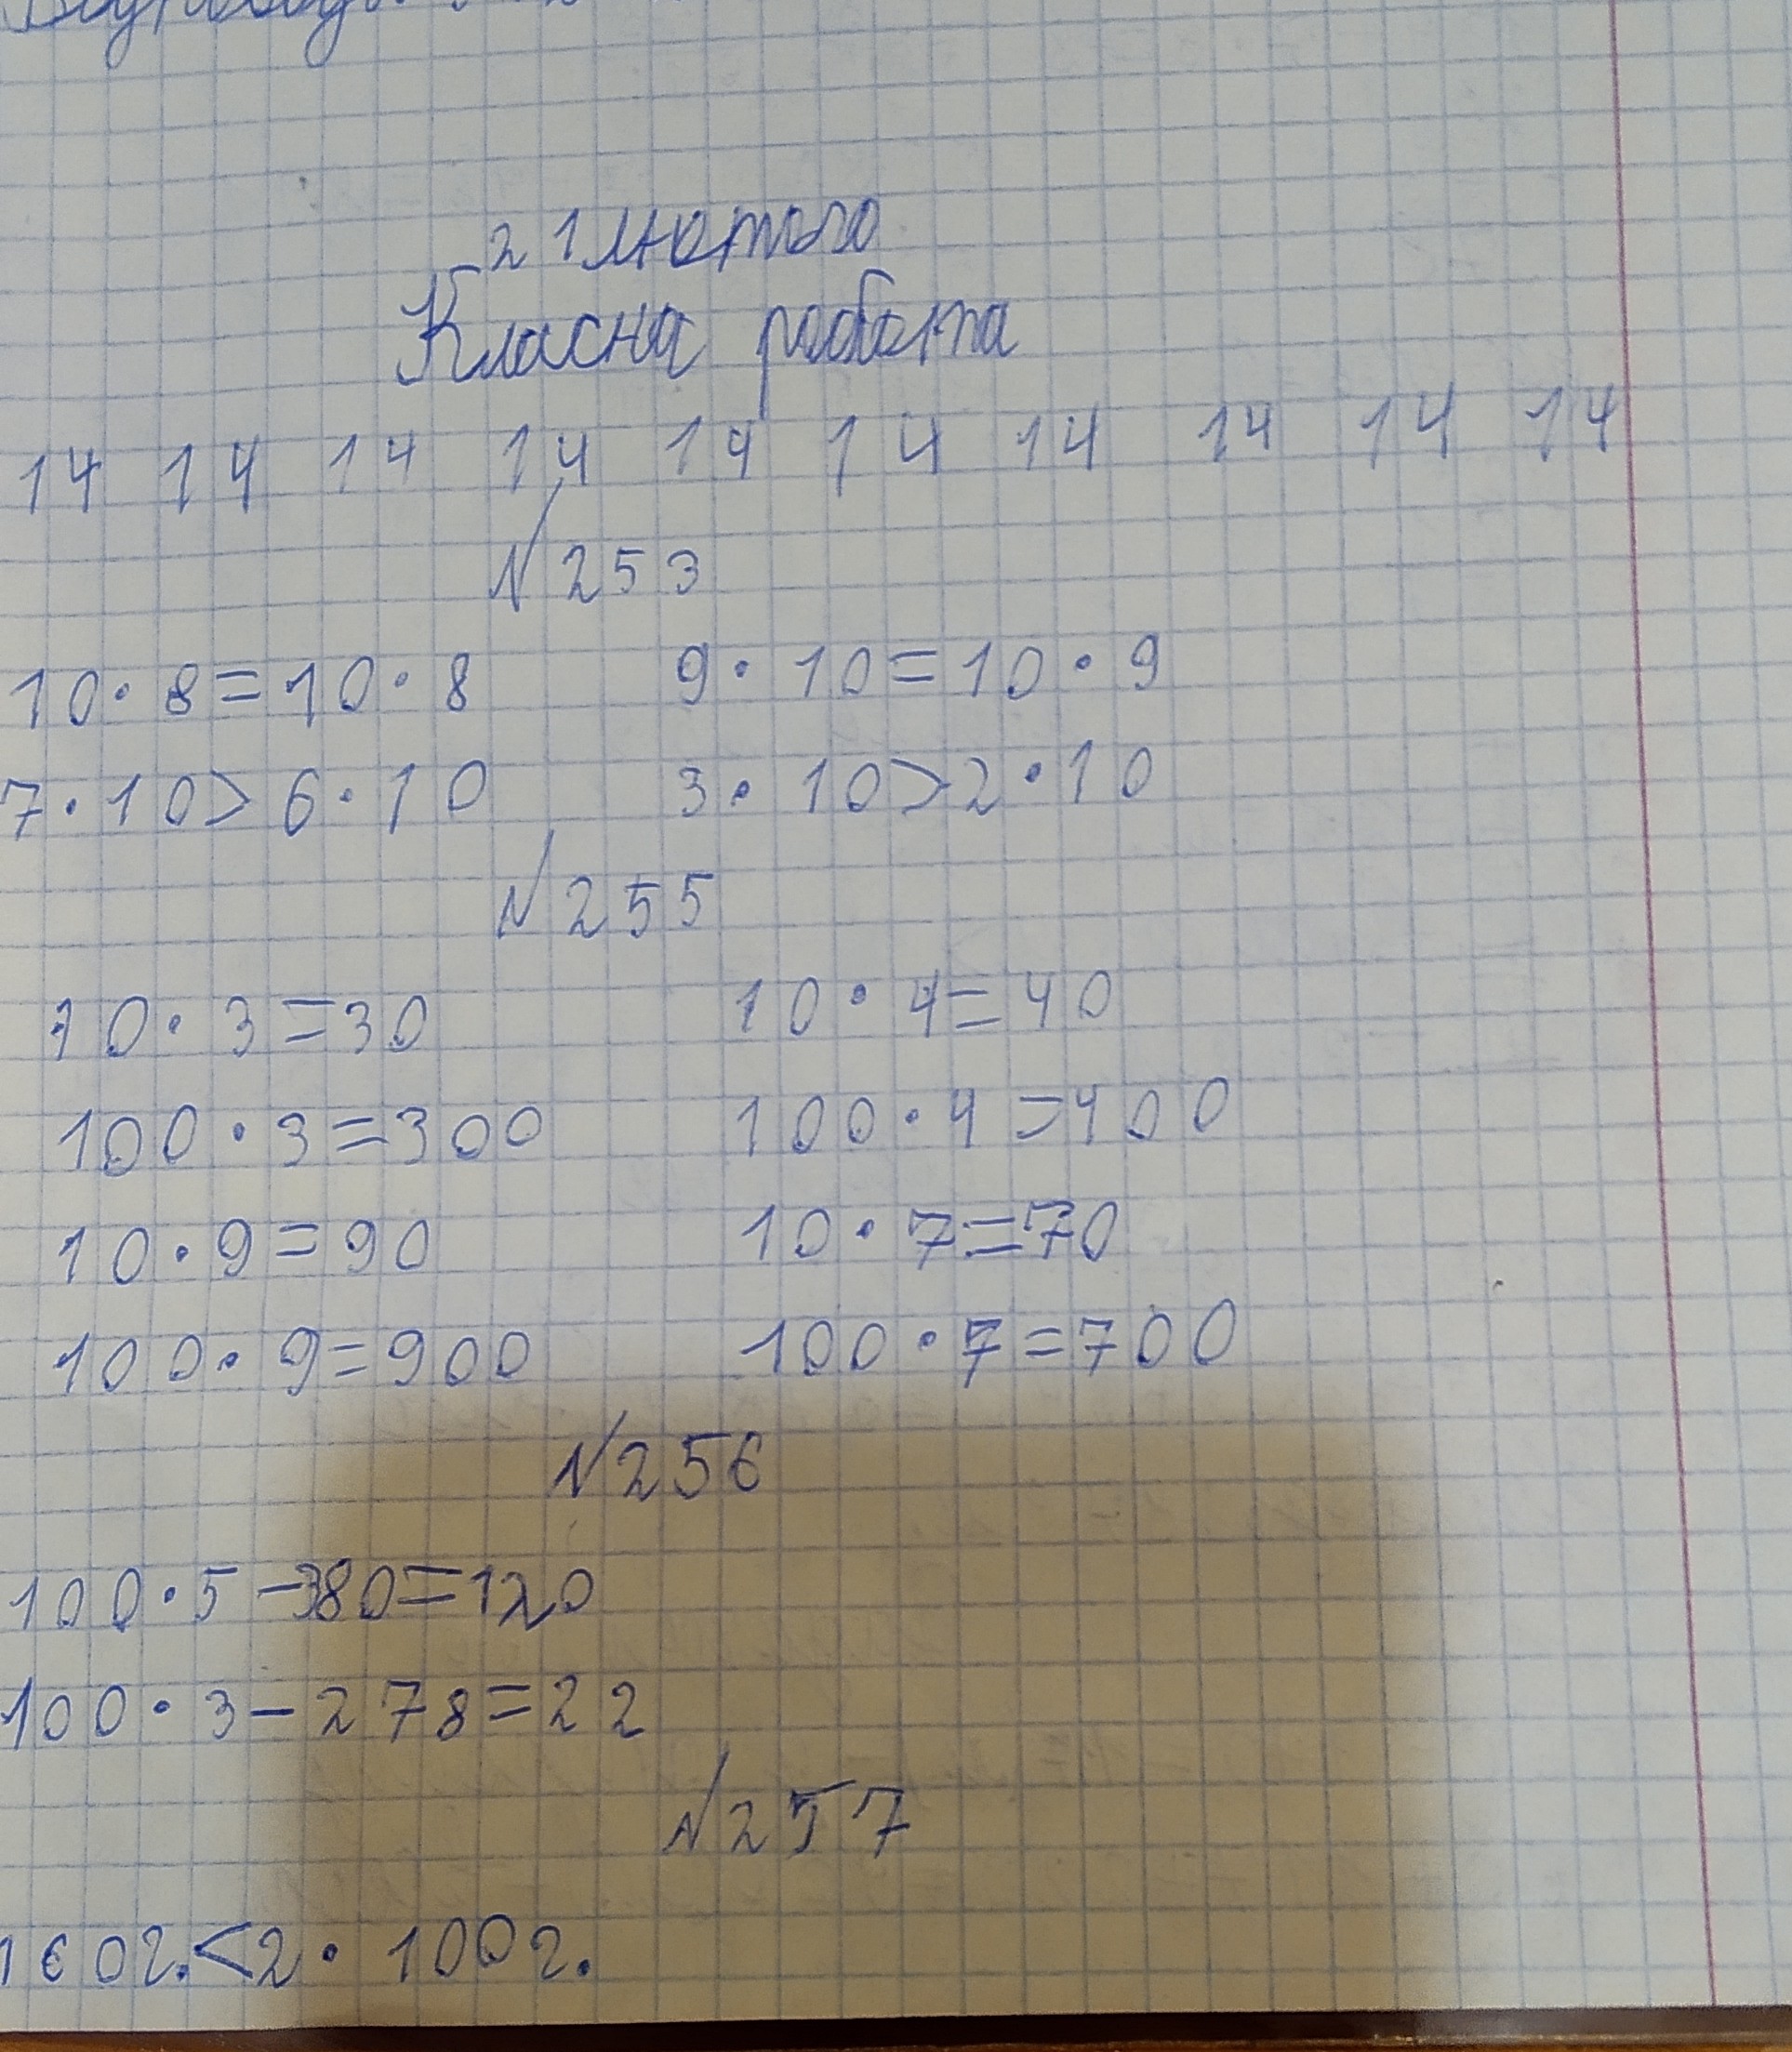 21 лютого
Класна робота
14 14 14 14 14 14 14 14 14 14
№253
10·8=10·8 9·10=10·9
7·10>6·10 3·10>2·10
№255
10·3=30 10·4=40
100·3=300 100·4=400
10·9=90 10·7=70
100·9=900 100·7=700
№256
100·5-380=120
100·3-278=22
№257
160г.<2·100г.